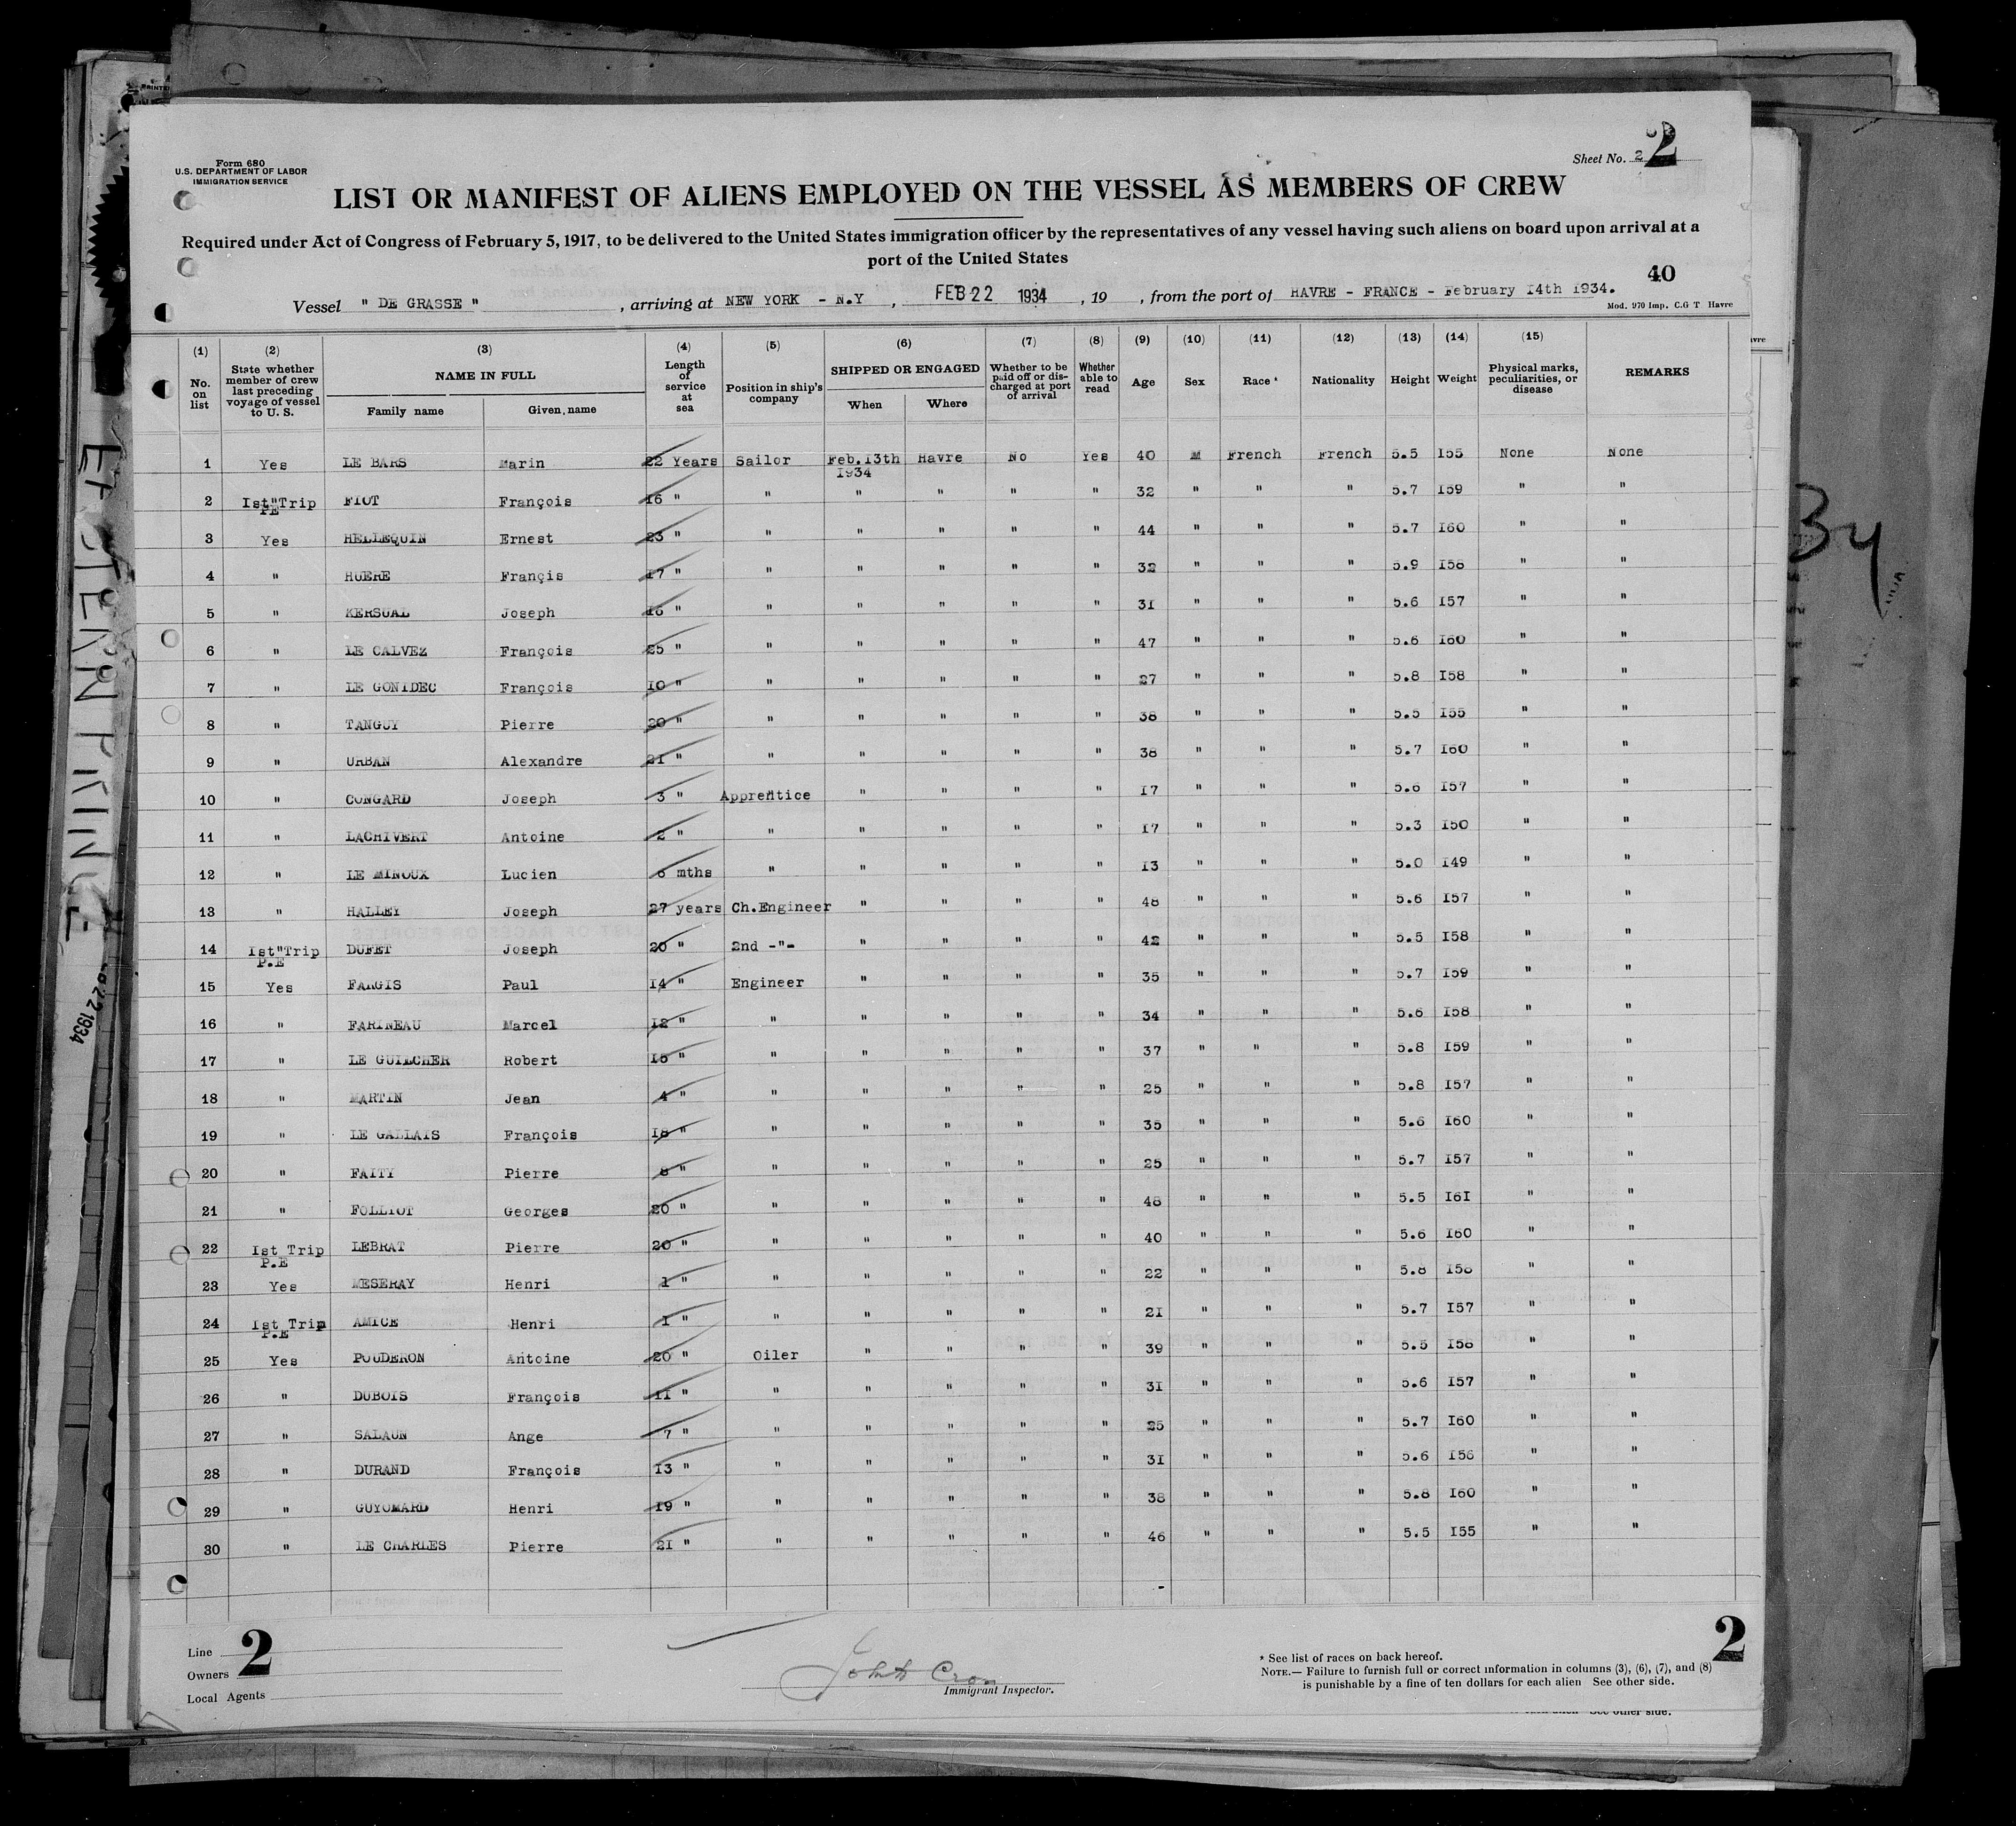 Form 680
U.S. DEPARTMENT OF LABOR
IMMIGRATION SERVICE
Sheet No. 2
2
LIST OR MANIFEST OF ALIENS EMPLOYED ON THE VESSEL AS MEMBERS OF CREW
Required under Act of Congress of February 5, 1917, to be delivered to the United States immigration officer by the representatives of any vessel having such aliens on board upon arrival at a
port of the United States
40
Vessel " DE GRASSE " , arriving at NEW YORK - N.Y , FEB 22 1934 , 19 , from the port of HAVRE - FRANCE - February 14th 1934.
Mod. 970 Imp. C.G T Havre
(1) No. on list (2) State whether member of crew last preceding voyage of vessel to U. S. (3) NAME IN FULL Family name Given name (4) Length of service at sea (5) Position in ship's company (6) SHIPPED OR ENGAGED When Where (7) Whether to be paid off or discharged at port of arrival (8) Whether able to read (9) Age (10) Sex (11) Race * (12) Nationality (13) Height (14) Weight (15) Physical marks, peculiarities, or disease REMARKS
1 Yes LE BARS Marin 22 Years Sailor Feb.13th 1934 Havre No Yes 40 M French French 5.5 155 None None
2 Ist"Trip PE FIOT François 16 " " " " " " 32 " " " 5.7 159 " "
3 Yes HELLEQUIN Ernest 23 " " " " " " 44 " " " 5.7 160 " "
4 " HUERE Françis 17 " " " " " " 32 " " " 5.9 158 " "
5 " KERSUAL Joseph 16 " " " " " " 31 " " " 5.6 157 " "
6 " LE CALVEZ François 25 " " " " " " 47 " " " 5.6 160 " "
7 " LE GONIDEC François 10 " " " " " " 27 " " " 5.8 158 " "
8 " TANGUY Pierre 20 " " " " " " 38 " " " 5.5 155 " "
9 " URBAN Alexandre 21 " " " " " " 38 " " " 5.7 160 " "
10 " CONGARD Joseph 3 " Apprentice " " " " 17 " " " 5.6 157 " "
11 " LACHIVERT Antoine 2 " " " " " " 17 " " " 5.3 150 " "
12 " LE MINOUX Lucien 6 mths " " " " " 13 " " " 5.0 149 " "
13 " HALLEY Joseph 27 years Ch.Engineer " " " " 48 " " " 5.6 157 " "
14 Ist"Trip P.E DUFET Joseph 20 " 2nd -"- " " " " 42 " " " 5.5 158 " "
15 Yes FARGIS Paul 14 " Engineer " " " " 35 " " " 5.7 159 " "
16 " FARINEAU Marcel 12 " " " " " " 34 " " " 5.6 158 " "
17 " LE GUILCHER Robert 15 " " " " " " 37 " " " 5.8 159 " "
18 " MARTIN Jean 4 " " " " " " 25 " " " 5.8 157 " "
19 " LE GALLAIS François 18 " " " " " " 35 " " " 5.6 160 " "
20 " FAITY Pierre 8 " " " " " " 25 " " " 5.7 157 " "
21 " FOLLIOT Georges 20 " " " " " " 48 " " " 5.5 161 " "
22 Ist Trip P.E LEBRAT Pierre 20 " " " " " " 40 " " " 5.6 160 " "
23 Yes MESERAY Henri 1 " " " " " " 22 " " " 5.8 158 " "
24 Ist Trip P.E AMICE Henri 1 " " " " " " 21 " " " 5.7 157 " "
25 Yes POUDERON Antoine 20 " Oiler " " " " 39 " " " 5.5 158 " "
26 " DUBOIS François 11 " " " " " " 31 " " " 5.6 157 " "
27 " SALAUN Ange 7 " " " " " " 25 " " " 5.7 160 " "
28 " DURAND François 13 " " " " " " 31 " " " 5.6 156 " "
29 " GUYOMARD Henri 19 " " " " " " 38 " " " 5.8 160 " "
30 " LE CHARLES Pierre 21 " " " " " " 46 " " " 5.5 155 " "
Line
Owners
Local Agents
2
John
Immigrant Inspector.
2
* See list of races on back hereof.
NOTE.— Failure to furnish full or correct information in columns (3), (6), (7), and (8)
is punishable by a fine of ten dollars for each alien See other side.
See other side.
34
EASTERN PRINCE
22 1934